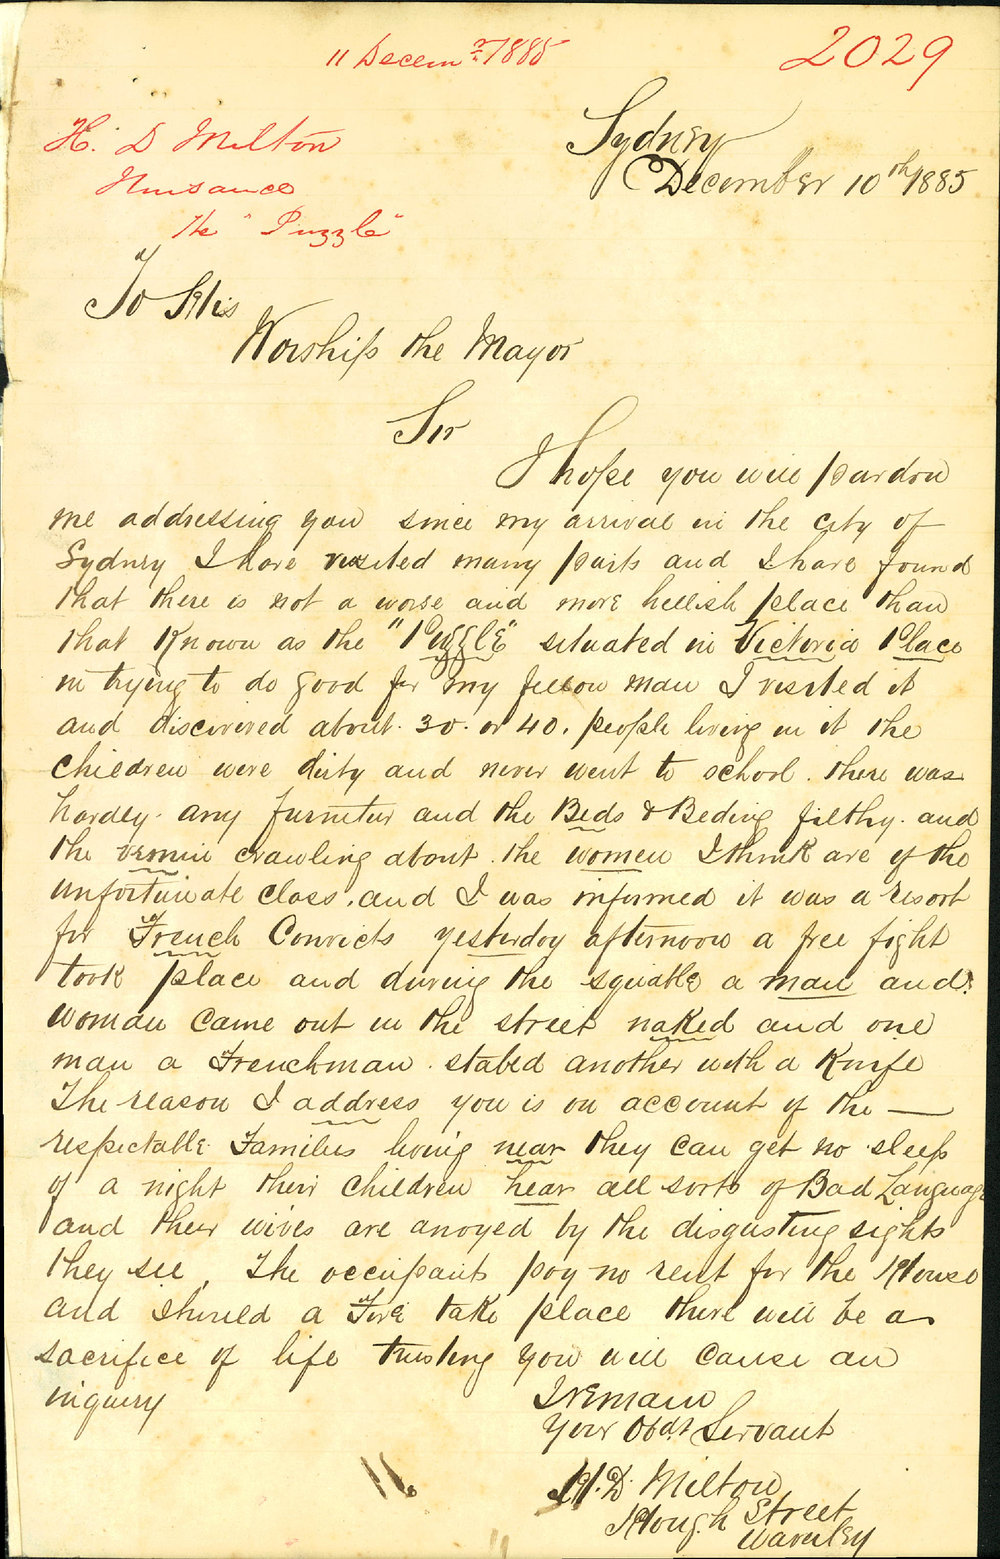 11 Decemr 1885
2029
H. D Milton
Nuisance
The "Puzzle"
Sydney
December 10th 1885
To His
Worship the Mayor
Sir
I hope you will pardon
me addressing you since my arrival in the city of
Sydney I have visited many parts and I have found
that there is not a worse and more hellish place than
that Known as the "Puzzle" situated in Victoria Place
in trying to do good for my fellow man I visited it
and discovered about. 30. or 40. people living in it the
children were dirty and never went to school. there was
hardly. any furnitur and the Beds & Beding filthy. and
the vermin crawling about. the women I think are of the
unfortunate class. and I was informed it was a resort
for French Convicts yesterday afternoon a free fight
took place and during the squable a man and
woman came out in the street naked and one
man a Frenchman. stabed another with a Knife
The reason I address you is on account of the —
respectable Families living near they can get no sleep
of a night their children hear all sorts of Bad Language
and their wives are anoyed by the disgusting sights
they see, The occupants pay no rent for the House
and should a Fire take place there will be a
sacrifice of life trusting you will cause an
inquiry
I remain
Your Obdt Servant
H. D. Milton
Hough Street
Waverley